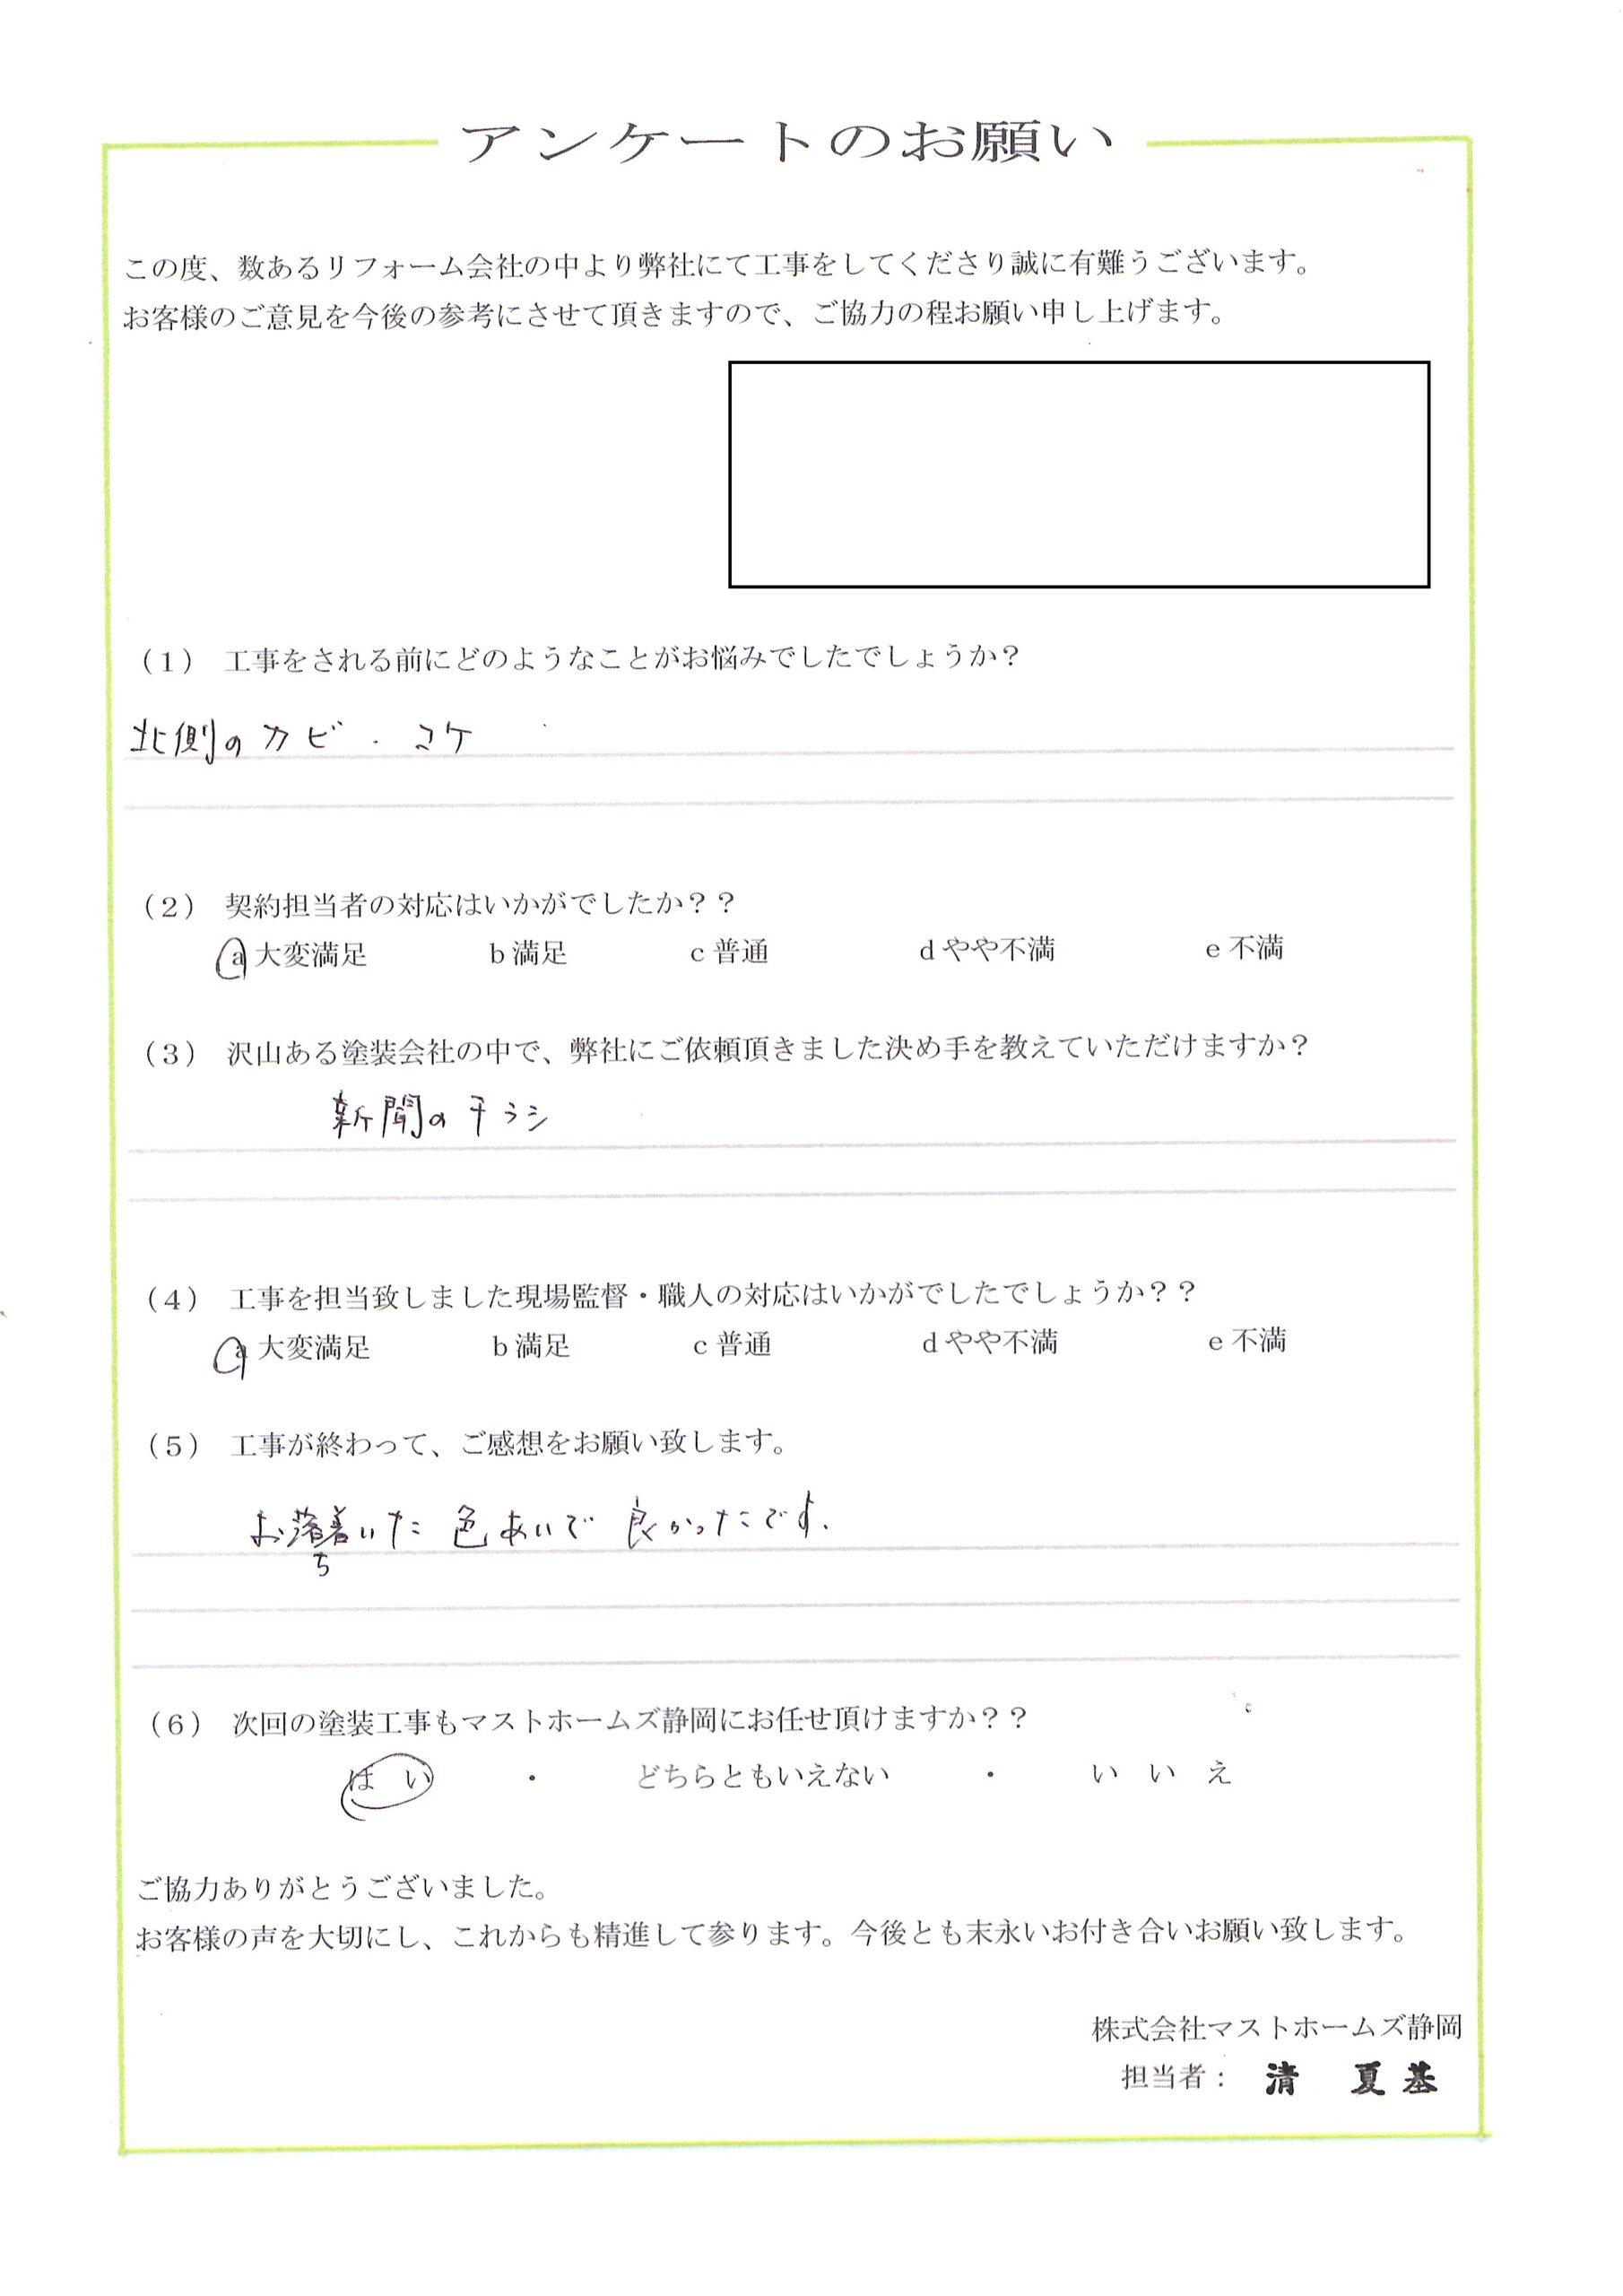 アンケートのお願い
この度、数あるリフォーム会社の中より弊社にて工事をしてくださり誠に有難うございます。
お客様のご意見を今後の参考にさせて頂きますので、ご協力の程お願い申し上げます。
（1） 工事をされる前にどのようなことがお悩みでしたでしょうか？
北側のカビ・コケ
（2） 契約担当者の対応はいかがでしたか？？
a 大変満足 b 満足 c 普通 d やや不満 e 不満
（3） 沢山ある塗装会社の中で、弊社にご依頼頂きました決め手を教えていただけますか？
新聞のチラシ
（4） 工事を担当致しました現場監督・職人の対応はいかがでしたでしょうか？？
a 大変満足 b 満足 c 普通 d やや不満 e 不満
（5） 工事が終わって、ご感想をお願い致します。
お落ち着いた色あいで良かったです.
（6） 次回の塗装工事もマストホームズ静岡にお任せ頂けますか？？
は い ・ どちらともいえない ・ い い え
ご協力ありがとうございました。
お客様の声を大切にし、これからも精進して参ります。今後とも末永いお付き合いお願い致します。
株式会社マストホームズ静岡
担当者： 清 夏基